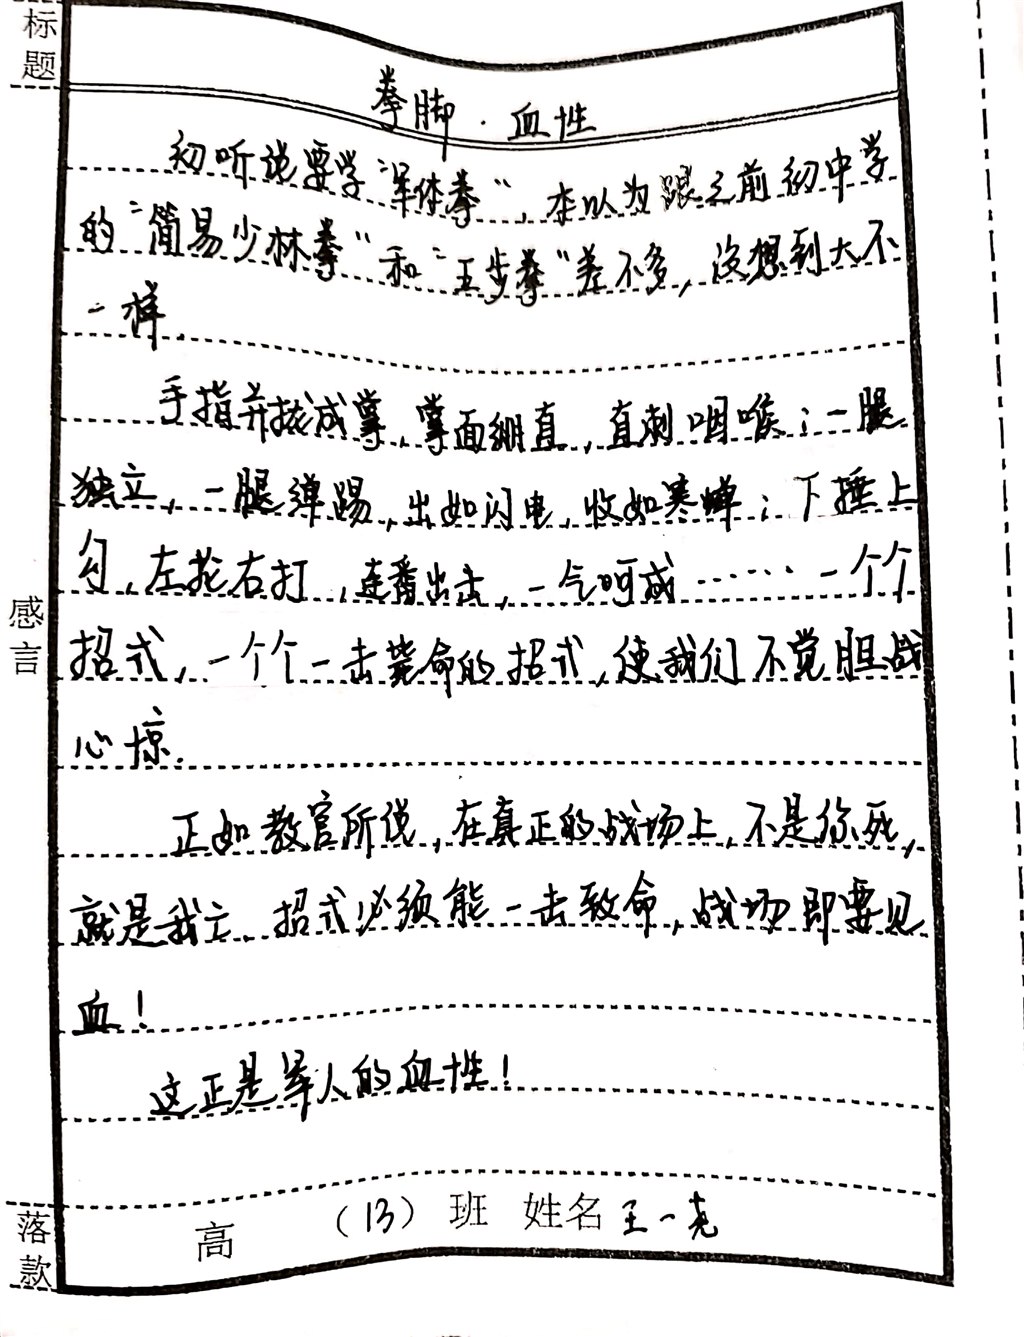 标题
拳脚·血性
初听说要学“军体拳”，本以为跟之前初中学
的“简易少林拳”和“五步拳”差不多，没想到大不
一样.
手指并拢成掌，掌面绷直，直刺咽喉；一腿
独立，一腿弹踢，出如闪电，收如寒蝉；下捶上
勾，左抡右打，连番出击，一气呵成……一个个
感言
招式，一个个一击毙命的招式，使我们不觉胆战
心惊.
正如教官所说，在真正的战场上，不是你死，
就是我亡.招式必须能一击致命，战场即要见
血！
这正是军人的血性！
落款
高 （13）班 姓名 王一尧